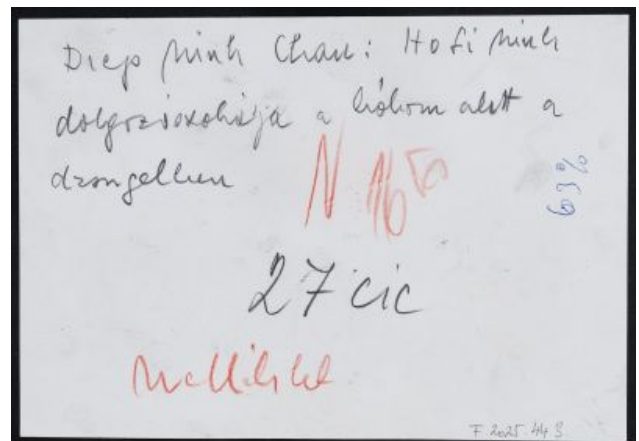 Diep Minh Chau: Ho Si Minh
dolgozószobája a háború alatt a
dzsungelben
N 16
63%
27 cic
F 2025.44.3